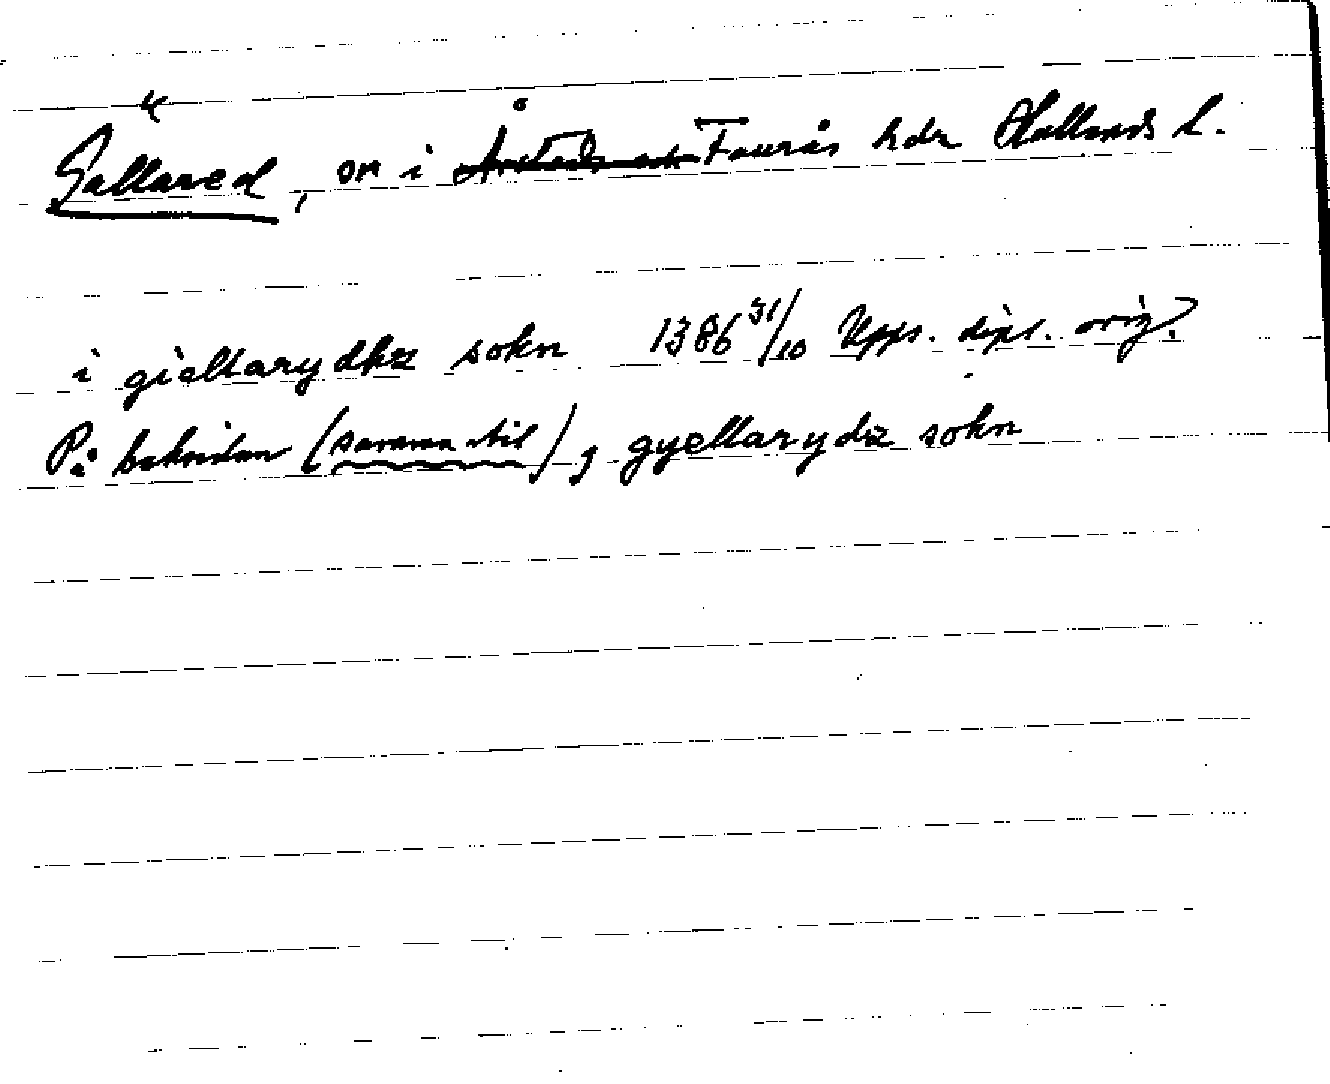 Gällared, sn i Årstads och Faurås hdr Hallands l.
i giællarydhz sokn 1386 31/10 Upps. dipl. orig.
På baksidan (samma stil) j gyellarydz sokn